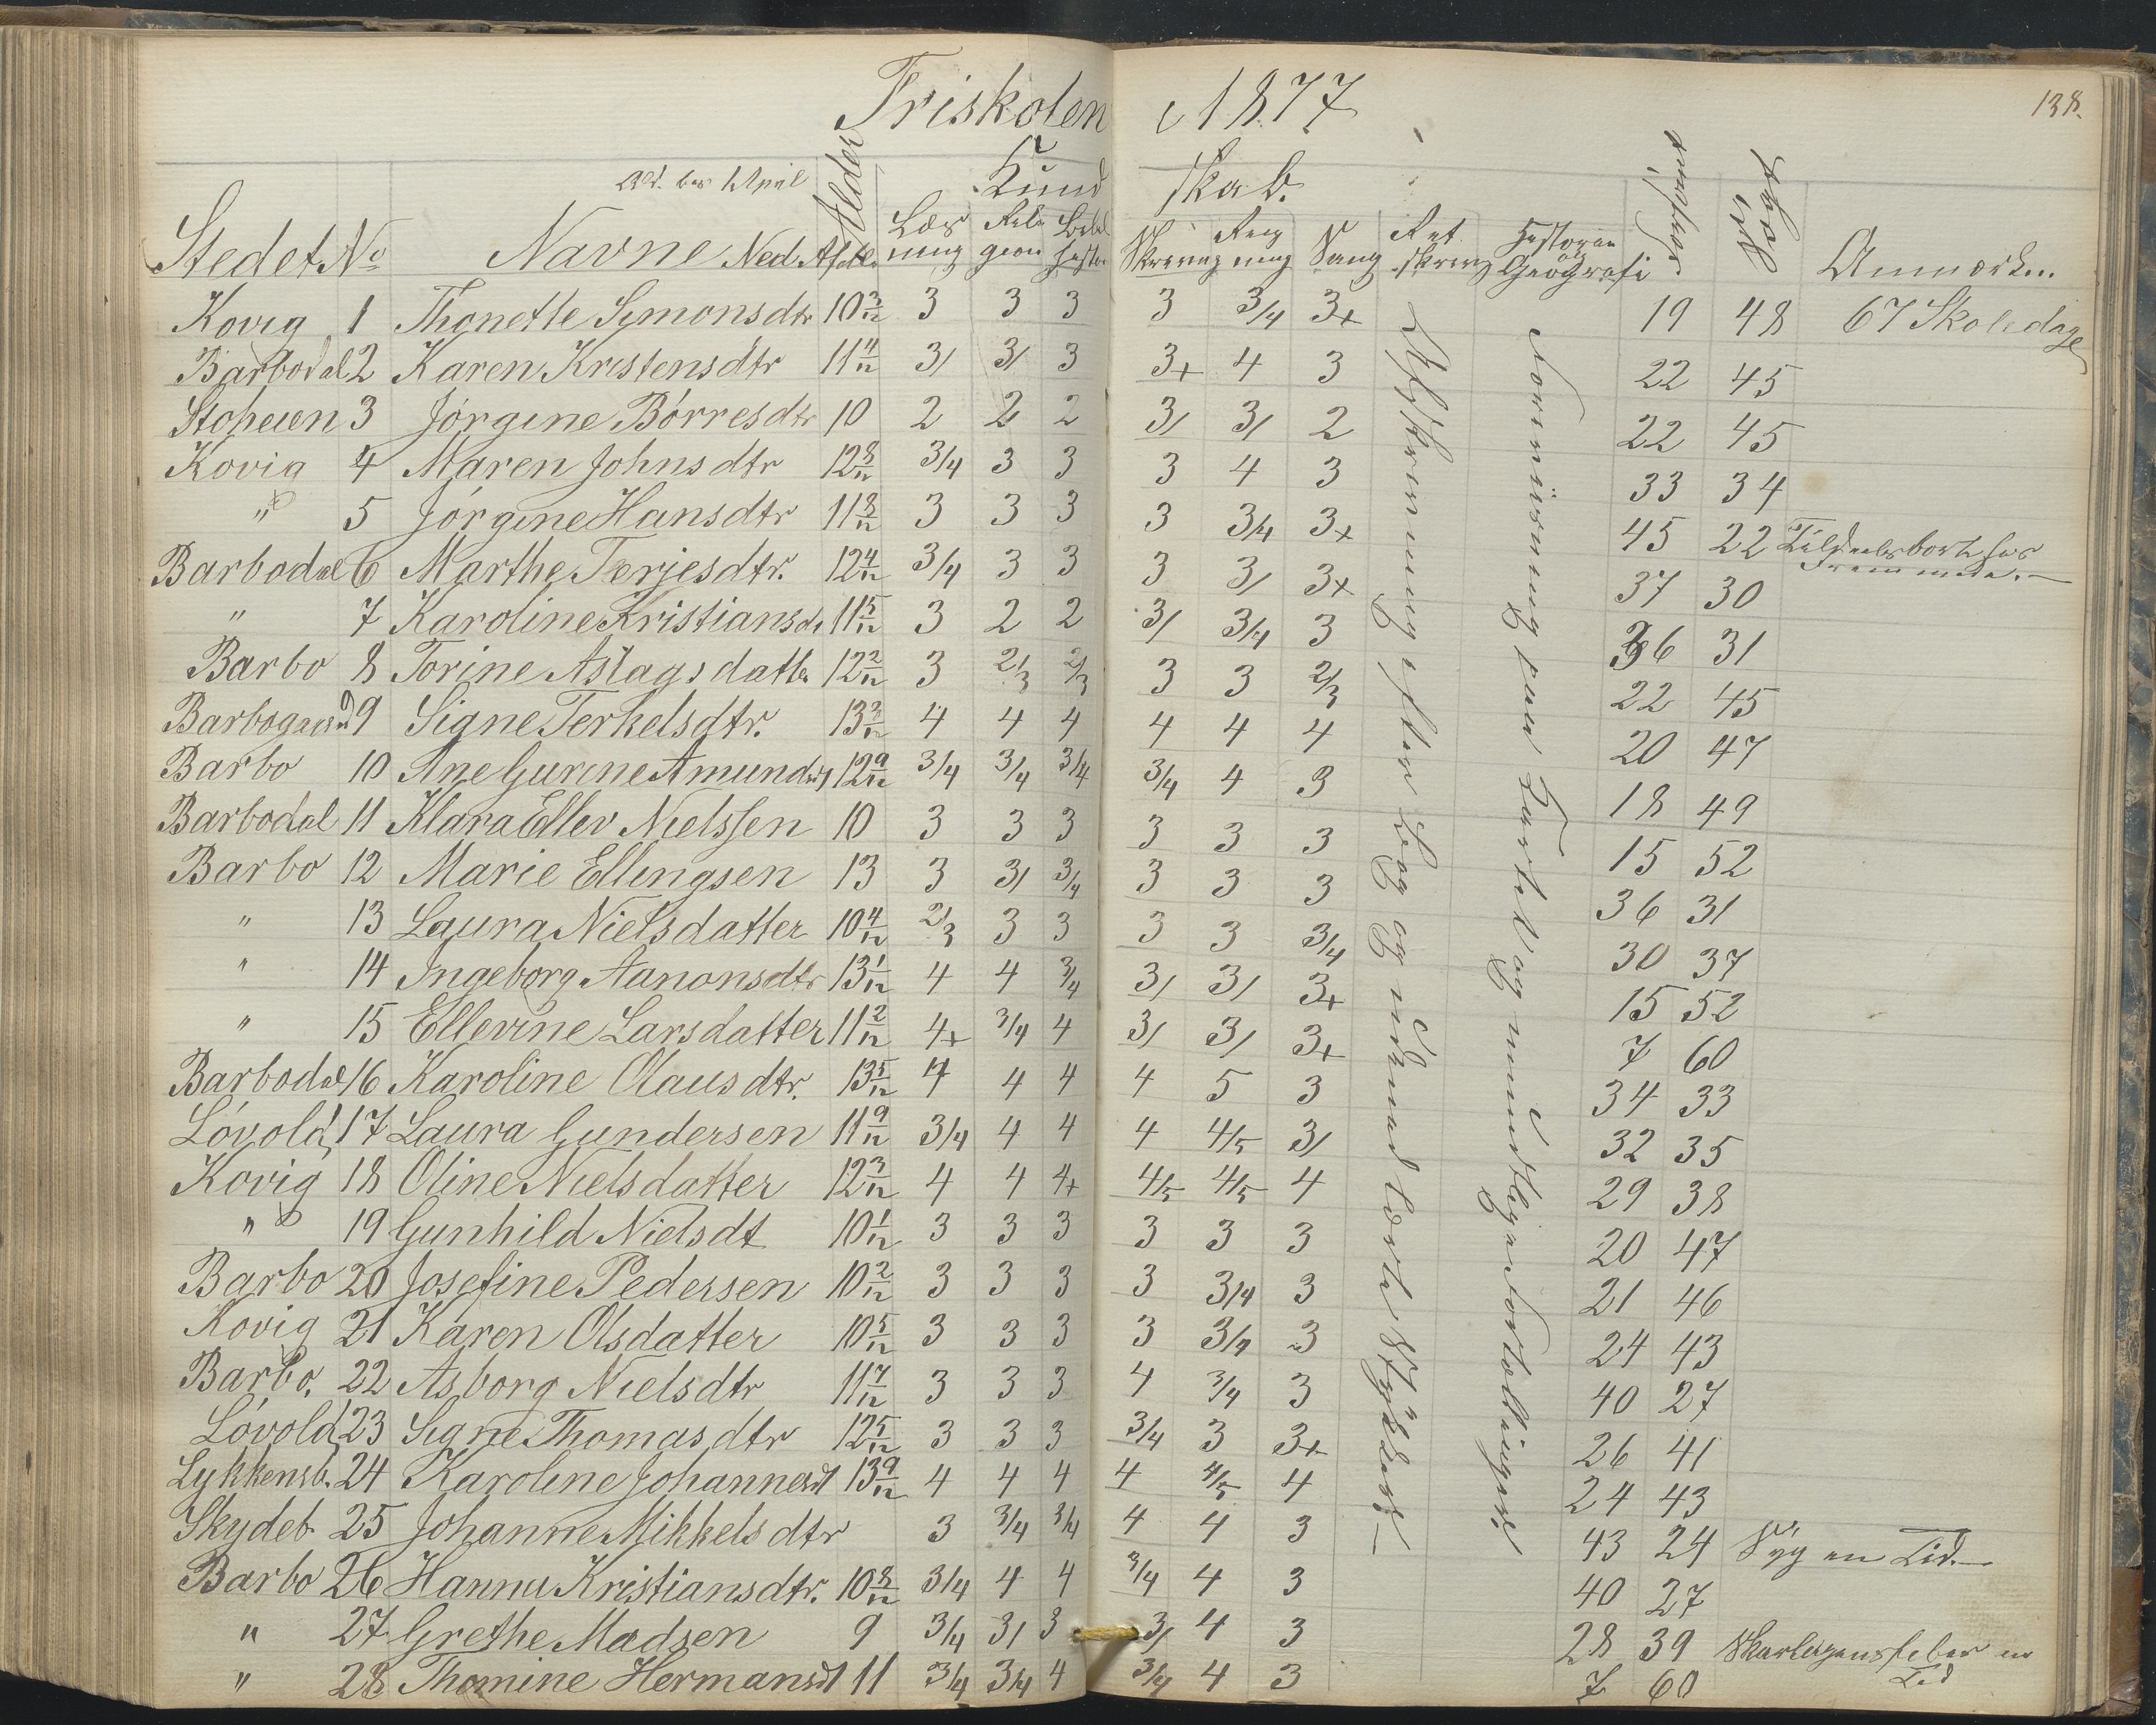 Friskolen i 1877
138.
Afd. bes April
Kundskab.
Stedet No Navne Ned. Afdel. Alder Læsning Religion Bibelhistor Skrivning Regning Sang Retskrivn Historie og Geografi forsømt søgt Anmærkn.
Kovig 1 Thonette Simonsdtr 10 3/12 3 3 3 3 3/4 3+ 19 48 67 Skoledage
Barbodal 2 Karen Kristensdtr 11 4/12 3/ 3/ 3 3+ 4 3 22 45
Stoheien 3 Jórgine Bórresdtr 10 2 2 2 3/ 3/ 2 22 45
Kovig 4 Maren Johnsdtr 12 8/12 3/4 3 3 3 4 3 33 34
" 5 Jórgine Hansdtr 11 8/12 3 3 3 3 3/4 3+ 45 22 Tildeels borte hos Fremmede.
Barbodal 6 Marthe Terjesdtr. 12 4/12 3/4 3 3 3 3/ 3+ 37 30
" 7 Karoline Kristiansdt 11 5/12 3 2 2 3/ 3/4 3 36 31
Barbo 8 Torine Aslagsdatter 12 2/12 3 2/3 2/3 3 3 2/3 22 45
Barbogaard 9 Signe Terkelsdtr. 13 3/12 4 4 4 4 4 4 20 47
Barbo 10 Ane Gurine Amundsdt 12 9/12 3/4 3/4 3/4 3/4 4 3 18 49
Barbodal 11 Klara Ellev Nielssen 10 3 3 3 3 3 3 15 52
Barbo 12 Marie Ellingsen 13 3 3/ 3/4 3 3 3 36 31
" 13 Laura Nielsdatter 10 4/12 2/3 3 3 3 3 3/4 30 37
" 14 Ingeborg Aanonsdtr 13 1/12 4 4 3/4 3/ 3/ 3+ 15 52
" 15 Ellevine Larsdatter 11 2/12 4+ 3/4 4 3/ 3/ 3+ 7 60
Barbodal 16 Karoline Olausdtr. 13 5/12 4 4 4 4 5 3 34 33
Lóvold 17 Laura Gundersen 11 9/12 3/4 4 4 4 4/5 3/ 32 35
Kovig 18 Oline Nielsdatter 12 3/12 4 4 4+ 4/5 4/5 4 29 38
" 19 Gunhild Nielsdt 10 1/12 3 3 3 3 3 3 20 47
Barbo 20 Josefine Pedersen 10 2/12 3 3 3 3 3/4 3 21 46
Kovig 21 Karen Olsdatter 10 5/12 3 3 3 3 3/4 3 24 43
Barbo. 22 Asborg Nielsdtr 11 7/12 3 3 3 4 3/4 3 40 27
Lóvold 23 Signe Thomasdtr 12 5/12 3 3 3 3/4 3 3+ 26 41
Lykkensb. 24 Karoline Johannesdt 13 9/12 4 4 4 4 4/5 4 24 43
Skydeb. 25 Johanne Mikkelsdtr 3 3/4 3/4 4 4 3 43 24 Syg en Tid.
Barbo 26 Hanna Kristiansdtr. 10 8/12 3/4 4 4 3/4 4 3 40 27
" 27 Grethe Madsen 9 3/4 3/ 3 3/ 4 3 28 39 Skarlagensfeber en Tid
" 28 Thomine Hermansdt 11 3/4 3/4 4 3/4 4 3 7 60
Afskrivning efter Bog og udenad lærte Stykker.
Forevisning paa Kartet og mundtlige Fortællinger.